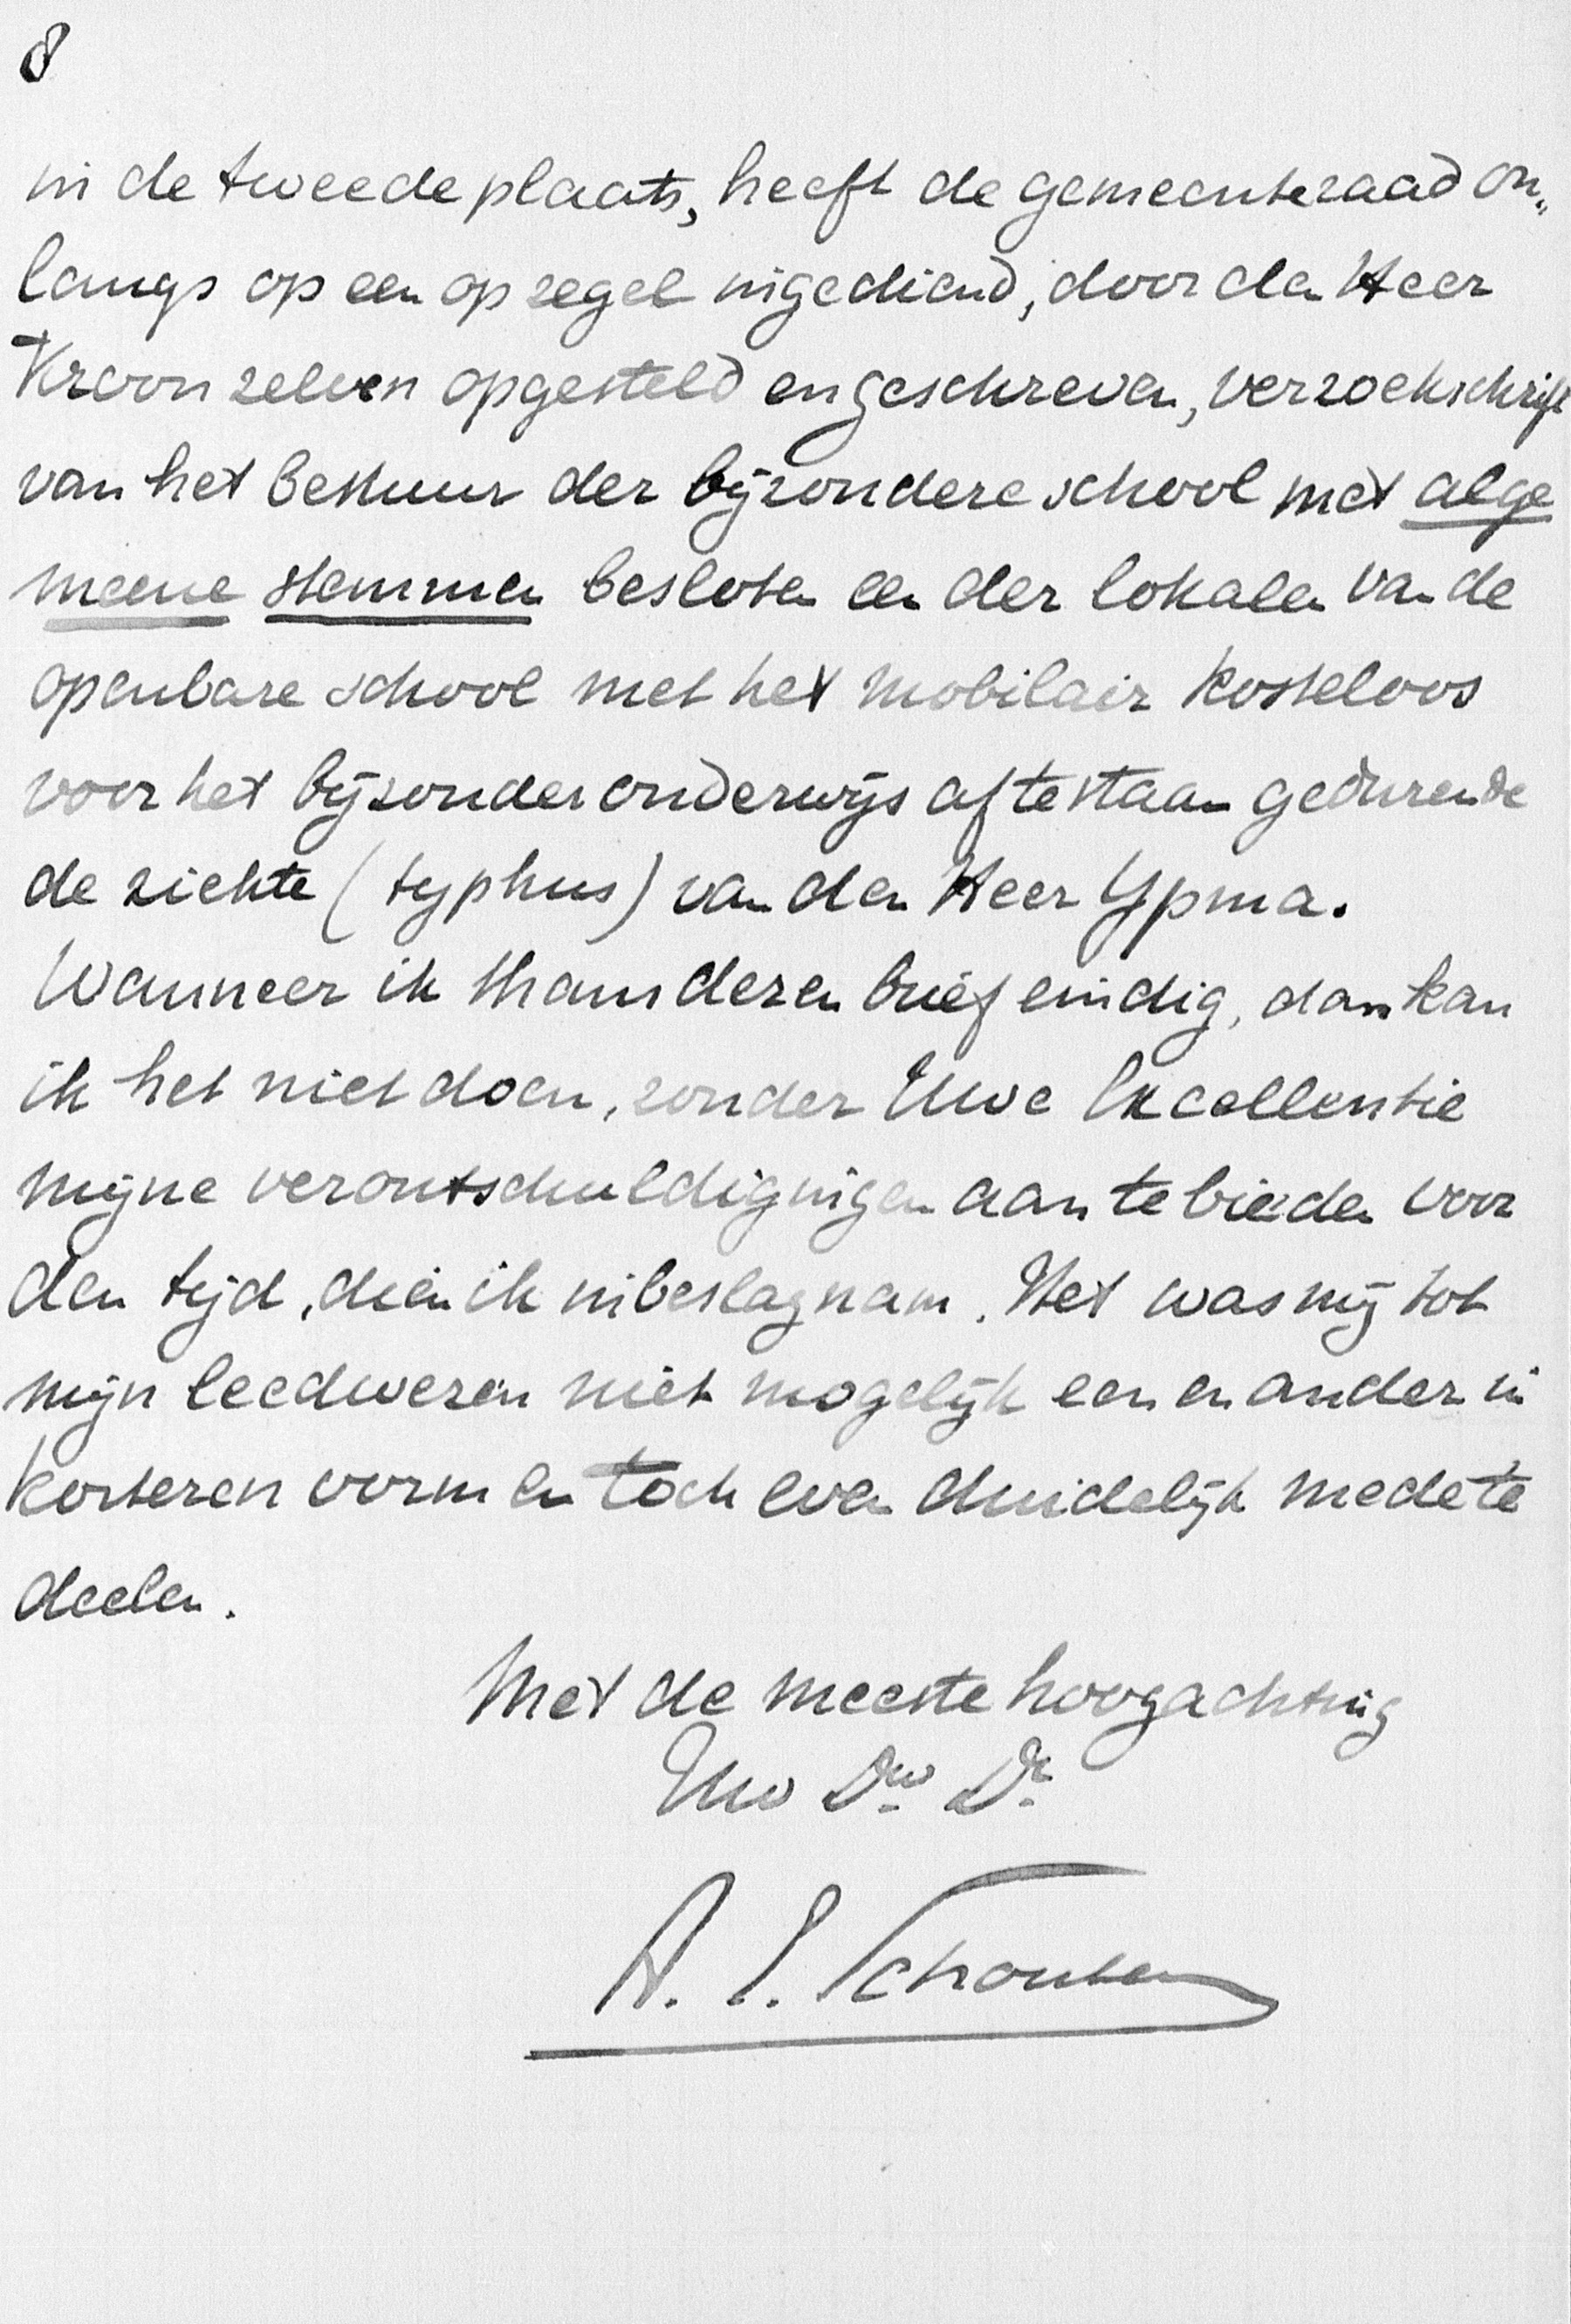 8
in de tweede plaats, heeft de gemeenteraad on„
langs op een op zegel ingediend, door den Heer
Kroon zelven opgesteld en geschreven, verzoekschrift
van het bestuur der bijzondere school met alge
meene stemmen besloten een der lokalen van de
openbare school met het mobilair kosteloos
voor het bijzonder onderwijs af te staan gedurende
de ziekte (typhus) van den Heer Ypma.
Wanneer ik thans dezen brief eindig, dan kan
ik het niet doen, zonder Uwe Excellentie
mijne verontschuldigingen aan te bieden voor
den tijd, dien ik in beslag nam. Het was mij tot
mijn leedwezen niet mogelijk een en ander in
korteren vorm en toch even duidelijk mede te
deelen.
Met de meeste hoogachting
Uw Dw. Dr.
A. J. Schouten